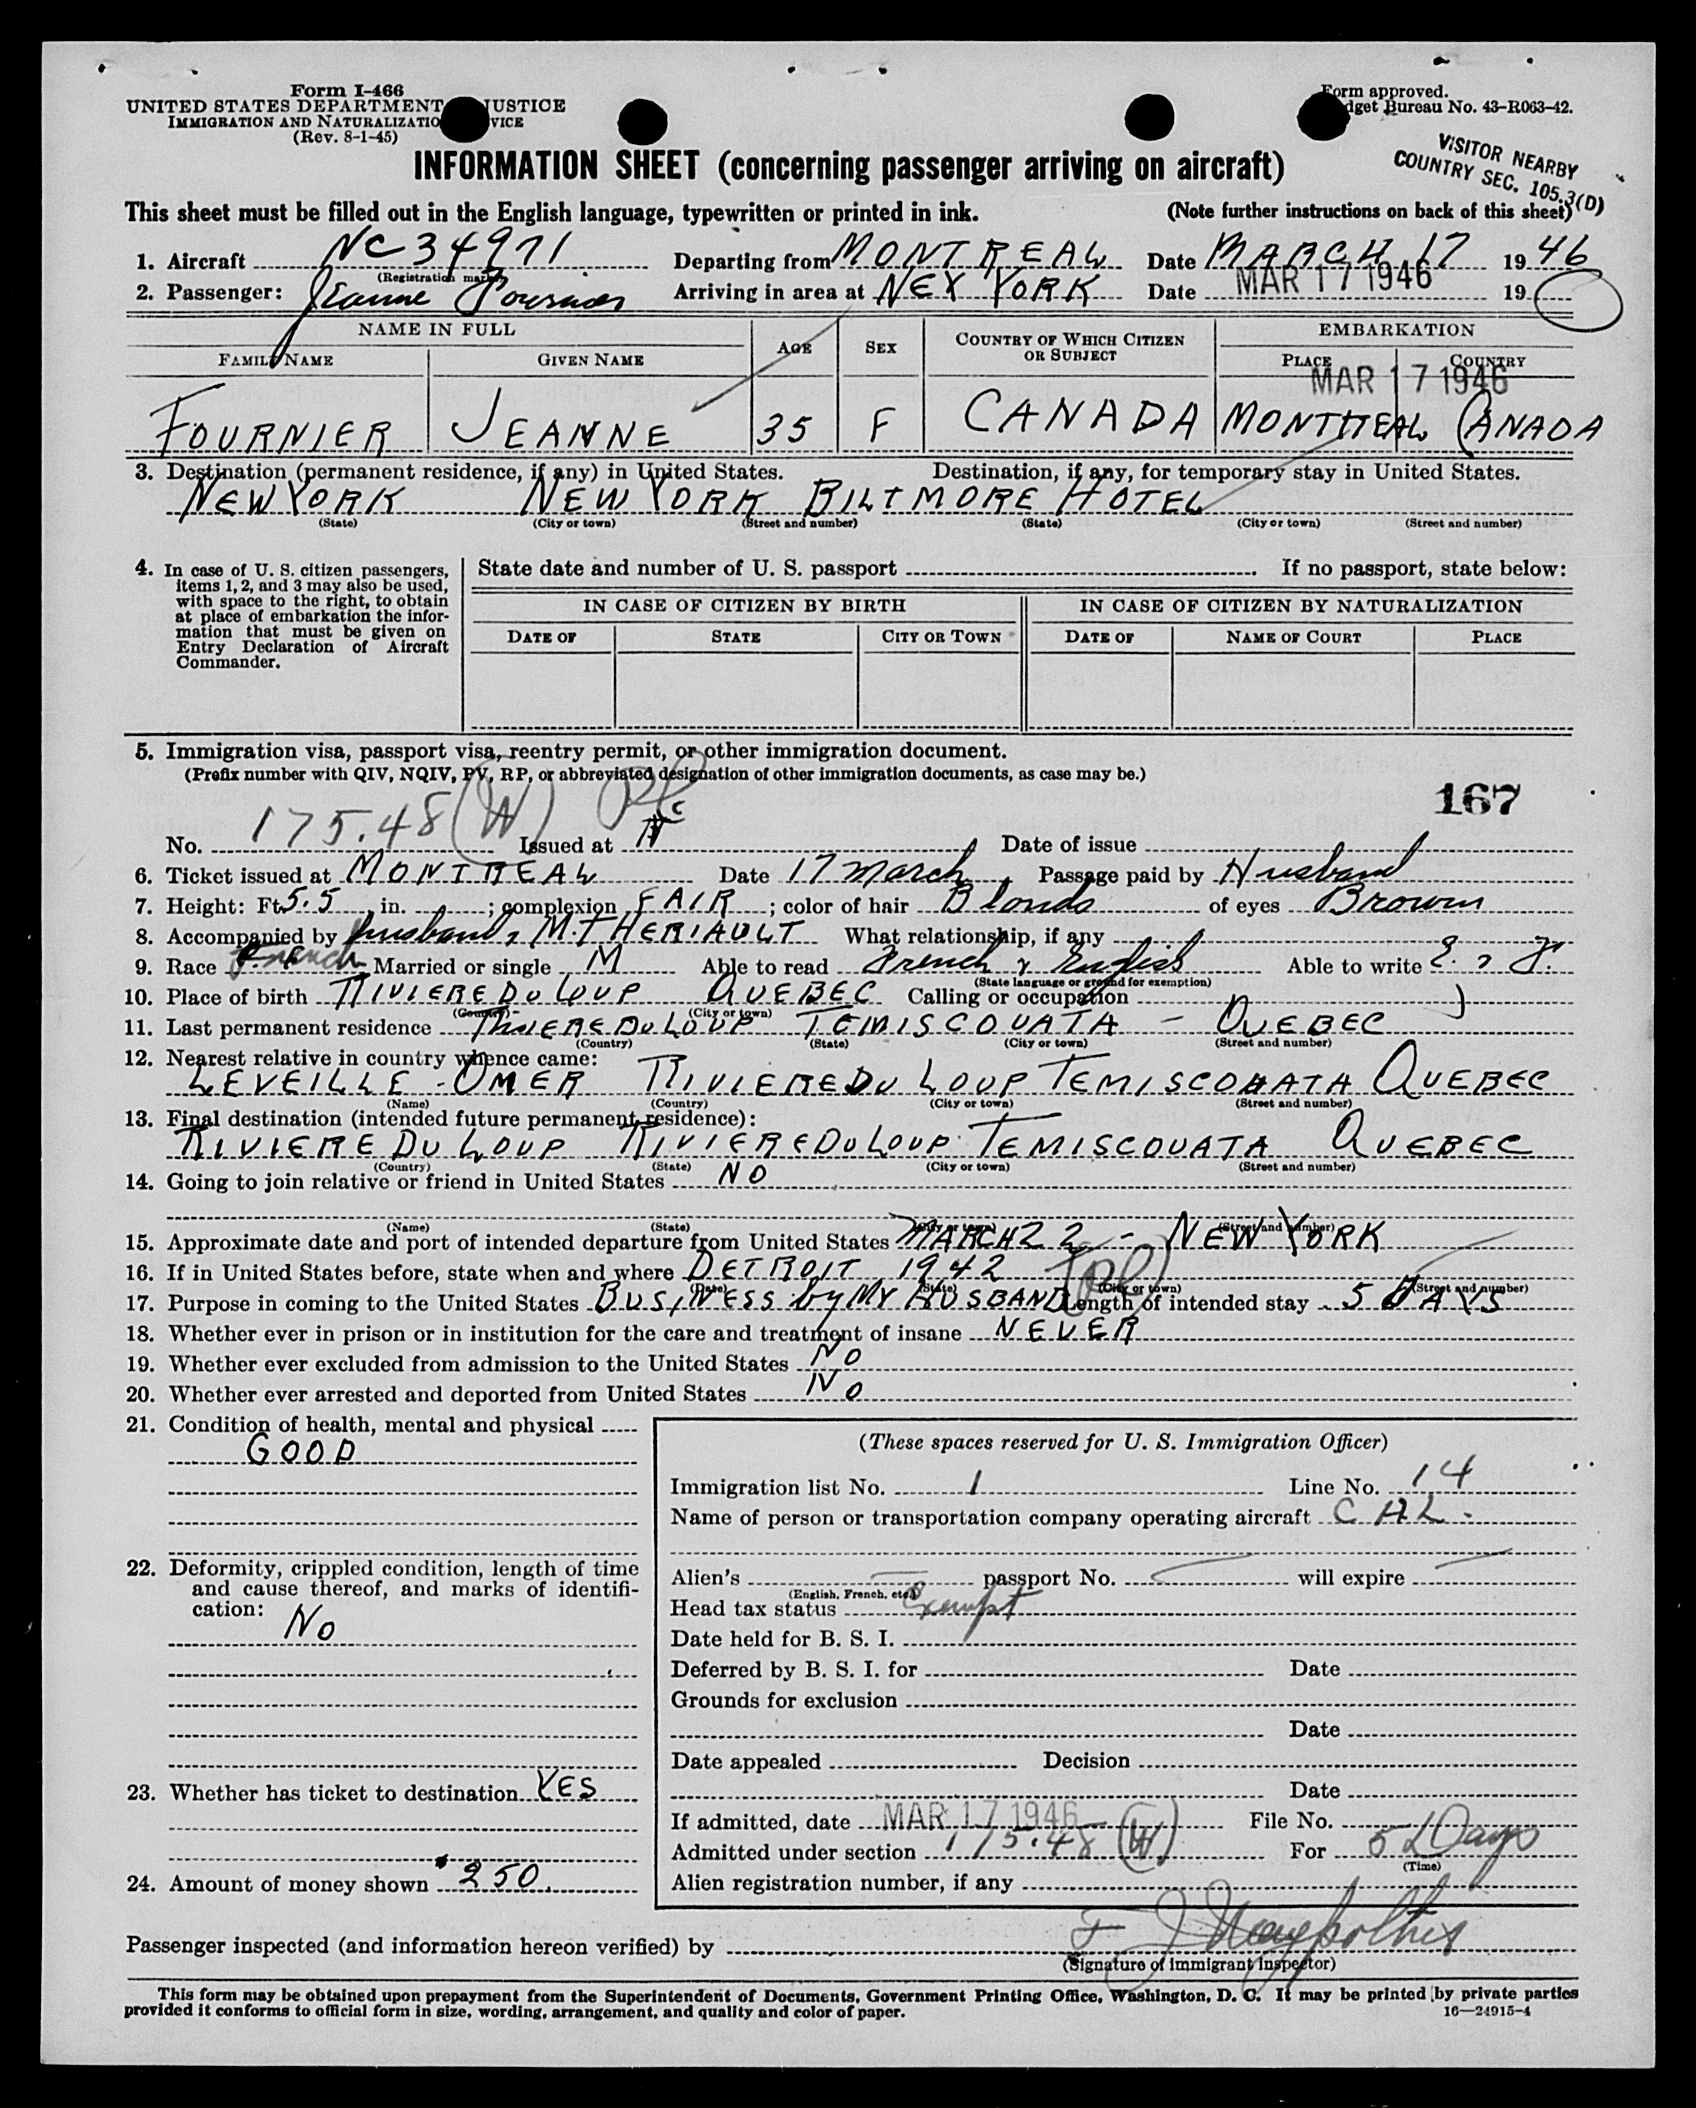 Form I-466
UNITED STATES DEPARTMENT JUSTICE
IMMIGRATION AND NATURALIZATIO VICE
(Rev. 8-1-45)
Form approved.
dget Bureau No. 43-R063-42.
VISITOR NEARBY
COUNTRY SEC. 105.3(D)
INFORMATION SHEET (concerning passenger arriving on aircraft)
This sheet must be filled out in the English language, typewritten or printed in ink. (Note further instructions on back of this sheet)
1. Aircraft NC 34971 Departing from MONTREAL Date MARCH 17 1946
(Registration marks)
2. Passenger: Jeanne Fournier Arriving in area at NEW YORK Date MAR 17 1946 19
NAME IN FULL AGE SEX COUNTRY OF WHICH CITIZEN OR SUBJECT EMBARKATION
FAMILY NAME GIVEN NAME PLACE COUNTRY
MAR 17 1946
FOURNIER JEANNE 35 F CANADA MONTREAL CANADA
3. Destination (permanent residence, if any) in United States. Destination, if any, for temporary stay in United States.
NEW YORK NEW YORK BILTMORE HOTEL
(State) (City or town) (Street and number) (State) (City or town) (Street and number)
4. In case of U. S. citizen passengers, items 1, 2, and 3 may also be used, with space to the right, to obtain at place of embarkation the information that must be given on Entry Declaration of Aircraft Commander.
State date and number of U. S. passport If no passport, state below:
IN CASE OF CITIZEN BY BIRTH IN CASE OF CITIZEN BY NATURALIZATION
DATE OF STATE CITY OR TOWN DATE OF NAME OF COURT PLACE
5. Immigration visa, passport visa, reentry permit, or other immigration document.
(Prefix number with QIV, NQIV, PV, RP, or abbreviated designation of other immigration documents, as case may be.)
167
No. 175.48 (W) Issued at Date of issue
6. Ticket issued at MONTREAL Date 17 March Passage paid by Husband
7. Height: Ft. 5.5 in. ; complexion FAIR ; color of hair Blonds of eyes Brown
8. Accompanied by husband, M. THERIAULT What relationship, if any
9. Race French Married or single M Able to read French & English Able to write E. & F.
(State language or ground for exemption)
10. Place of birth RIVIERE DU LOUP QUEBEC Calling or occupation
(Country) (City or town)
11. Last permanent residence RIVIERE DU LOUP TEMISCOUATA - QUEBEC
(Country) (State) (City or town) (Street and number)
12. Nearest relative in country whence came:
LEVEILLE - OMER RIVIERE DU LOUP TEMISCOUATA QUEBEC
(Name) (Country) (City or town) (Street and number)
13. Final destination (intended future permanent residence):
RIVIERE DU LOUP RIVIERE DU LOUP TEMISCOUATA QUEBEC
(Country) (State) (City or town) (Street and number)
14. Going to join relative or friend in United States NO
(Name) (State) (City or town) (Street and number)
15. Approximate date and port of intended departure from United States MARCH 22 - NEW YORK
16. If in United States before, state when and where DETROIT 1942
(Date) (State) (City or town) (Street and number)
17. Purpose in coming to the United States BUSINESS by MY HUSBAND Length of intended stay 5 DAYS
18. Whether ever in prison or in institution for the care and treatment of insane NEVER
19. Whether ever excluded from admission to the United States NO
20. Whether ever arrested and deported from United States NO
21. Condition of health, mental and physical
GOOD
22. Deformity, crippled condition, length of time and cause thereof, and marks of identification:
NO
23. Whether has ticket to destination YES
24. Amount of money shown $250.
(These spaces reserved for U. S. Immigration Officer)
Immigration list No. 1 Line No. 14
Name of person or transportation company operating aircraft CAL.
Alien's passport No. will expire
(English, French, etc.)
Head tax status Exempt
Date held for B. S. I.
Deferred by B. S. I. for Date
Grounds for exclusion
Date
Date appealed Decision
Date
If admitted, date MAR 17 1946 File No.
Admitted under section 175.48 (W) For 5 Days
(Time)
Alien registration number, if any
Passenger inspected (and information hereon verified) by
(Signature of Immigrant Inspector)
This form may be obtained upon prepayment from the Superintendent of Documents, Government Printing Office, Washington, D. C. It may be printed by private parties
provided it conforms to official form in size, wording, arrangement, and quality and color of paper. 16—24915-4